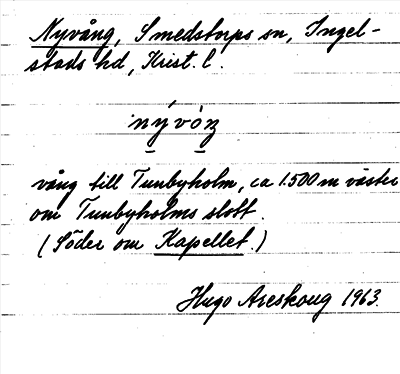 Nyvång, Smedstorps sn, Ingel-
stads hd, Krist. l.
nývóŋ
vång till Tunbyholm, ca 1.500 m väster
om Tunbyholms slott.
(Söder om Kapellet.)
Hugo Areskoug 1963.